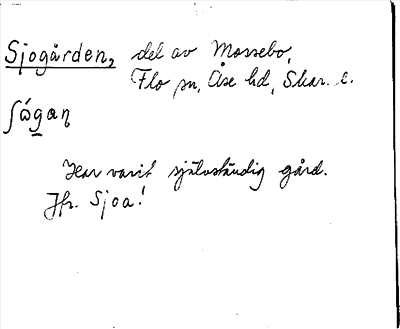 Sjogården, del av Mossebo,
Flo sn, Åse hd, Skar. l.
ʃógan
Har varit självständig gård.
Jfr. Sjoa!